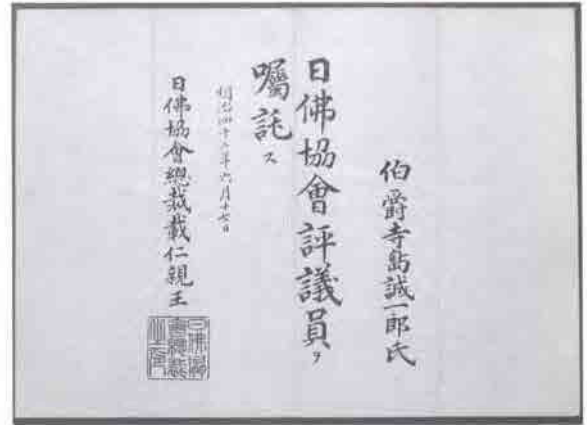 伯爵寺島誠一郎氏
日佛協會評議員ヲ
囑託ス
明治四十二年六月十七日
日佛協會總裁載仁親王